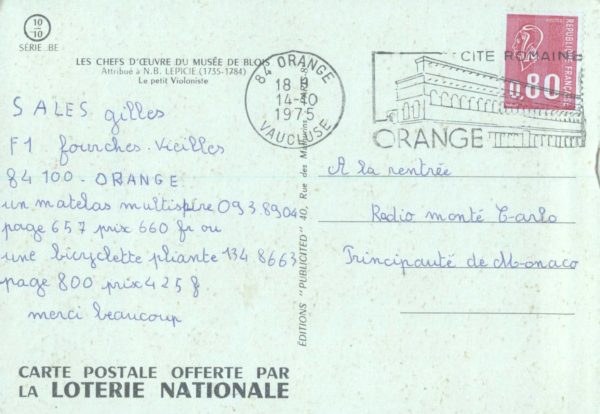 10
10
SÉRIE BE
LES CHEFS D'ŒUVRE DU MUSÉE DE BLOIS
Attribué à N.B. LEPICIE (1755-1784)
Le petit Violoniste
84 ORANGE
18 H
14-10
1975
VAUCLUSE
CITE ROMAINE
ORANGE
REPUBLIQUE FRANÇAISE
0,80
SALES gilles
F1 fourches-vieilles
84100-ORANGE
un matelas multispire 093.8904
page 657 prix 660 fr ou
une bicyclette pliante 134.8663
page 800 prix 425 f
merci beaucoup
EDITIONS "PUBLICITED" 40, Rue des
A la rentrée
Radio monté Carlo
Principauté de Monaco
CARTE POSTALE OFFERTE PAR
LA LOTERIE NATIONALE